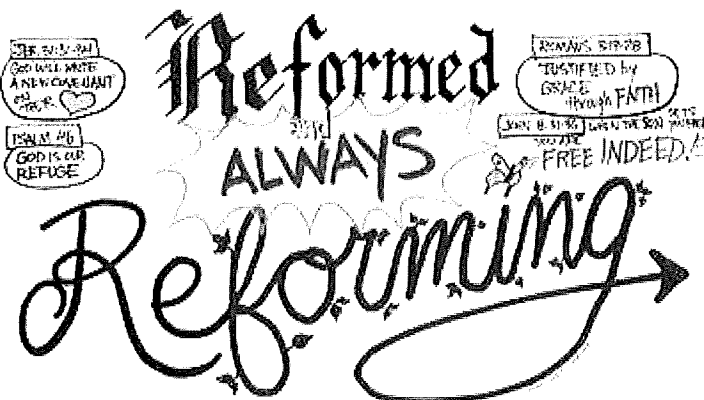 JER. 31:31-34
GOD WILL WRITE
A NEW COVENANT
ON
YOUR
PSALM 46
GOD IS OUR
REFUGE
Reformed
ALWAYS
Reforming
ROMANS 3:19-28
JUSTIFIED by
GRACE
through FAITH
JOHN 8:31-36
WHEN THE SON SETS
YOU FREE
YOU ARE
FREE INDEED!